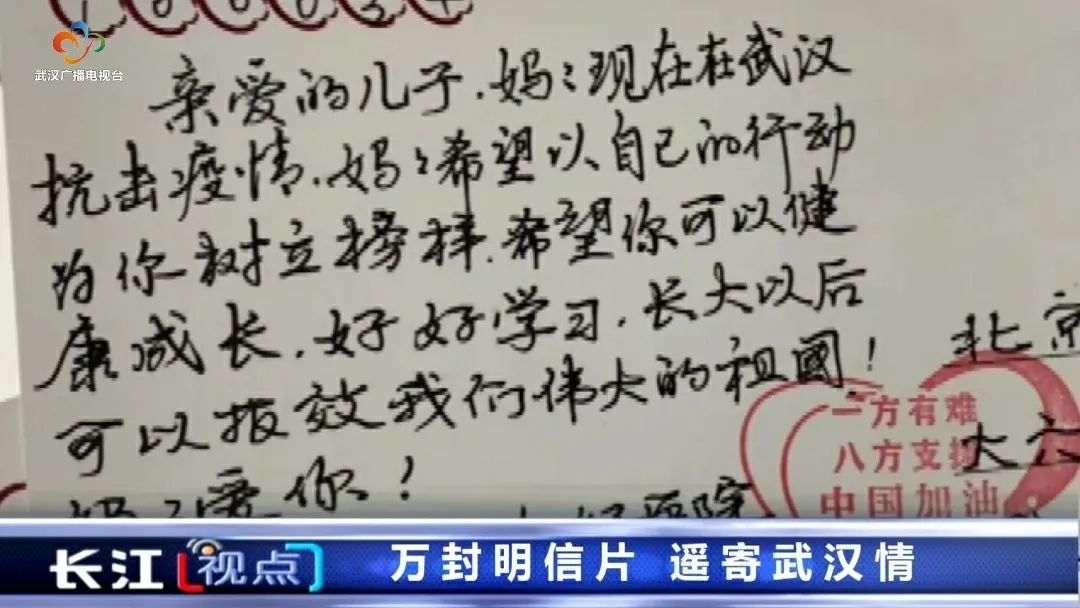 1 0 0 0 2 4
武汉广播电视台
亲爱的儿子,妈〻现在在武汉
抗击疫情,妈〻希望以自己的行动
为你树立榜样,希望你可以健
康成长,好好学习,长大以后
可以报效我们伟大的祖國!
妈〻爱你!
北京
大六
医院
一方有难
八方支援
中国加油
长江视点
万封明信片 遥寄武汉情